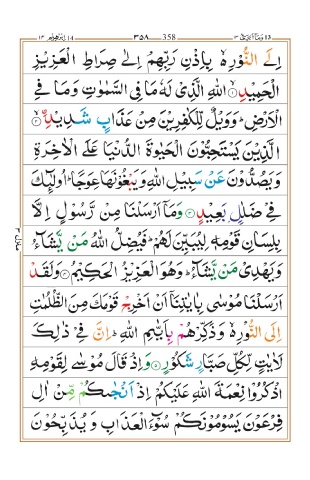 ابراهيم ١٤ ٣٥٨ 358 وما ابرئ ١٣
اِلَى النُّوْرِ ۙ بِاِذْنِ رَبِّهِمْ اِلٰى صِرَاطِ الْعَزِيْزِ
الْحَمِيْدِ ۙ اللّٰهِ الَّذِىْ لَهٗ مَا فِى السَّمٰوٰتِ وَمَا فِى
الْاَرْضِ ؕ وَوَيْلٌ لِّلْكٰفِرِيْنَ مِنْ عَذَابٍ شَدِيْدِ ۙ
الَّذِيْنَ يَسْتَحِبُّوْنَ الْحَيٰوةَ الدُّنْيَا عَلَى الْاٰخِرَةِ
وَيَصُدُّوْنَ عَنْ سَبِيْلِ اللّٰهِ وَيَبْغُوْنَهَا عِوَجًا ؕ اُولٰٓئِكَ
فِىْ ضَلٰلٍۢ بَعِيْدٍ ۞ وَمَاۤ اَرْسَلْنَا مِنْ رَّسُوْلٍ اِلَّا
بِلِسَانِ قَوْمِهٖ لِيُبَيِّنَ لَهُمْ ؕ فَيُضِلُّ اللّٰهُ مَنْ يَّشَآءُ
وَيَهْدِىْ مَنْ يَّشَآءُ ؕ وَهُوَ الْعَزِيْزُ الْحَكِيْمُ ۞ وَلَقَدْ
اَرْسَلْنَا مُوْسٰى بِاٰيٰتِنَاۤ اَنْ اَخْرِجْ قَوْمَكَ مِنَ الظُّلُمٰتِ
اِلَى النُّوْرِ ۙ وَذَكِّرْهُمْ بِاَيّٰىمِ اللّٰهِ ؕ اِنَّ فِىْ ذٰلِكَ
لَاٰيٰتٍ لِّكُلِّ صَبَّارٍ شَكُوْرٍ ۞ وَاِذْ قَالَ مُوْسٰى لِقَوْمِهِ
اذْكُرُوْا نِعْمَةَ اللّٰهِ عَلَيْكُمْ اِذْ اَنْجٰىكُمْ مِّنْ اٰلِ
فِرْعَوْنَ يَسُوْمُوْنَكُمْ سُوْٓءَ الْعَذَابِ وَ يُذَبِّحُوْنَ